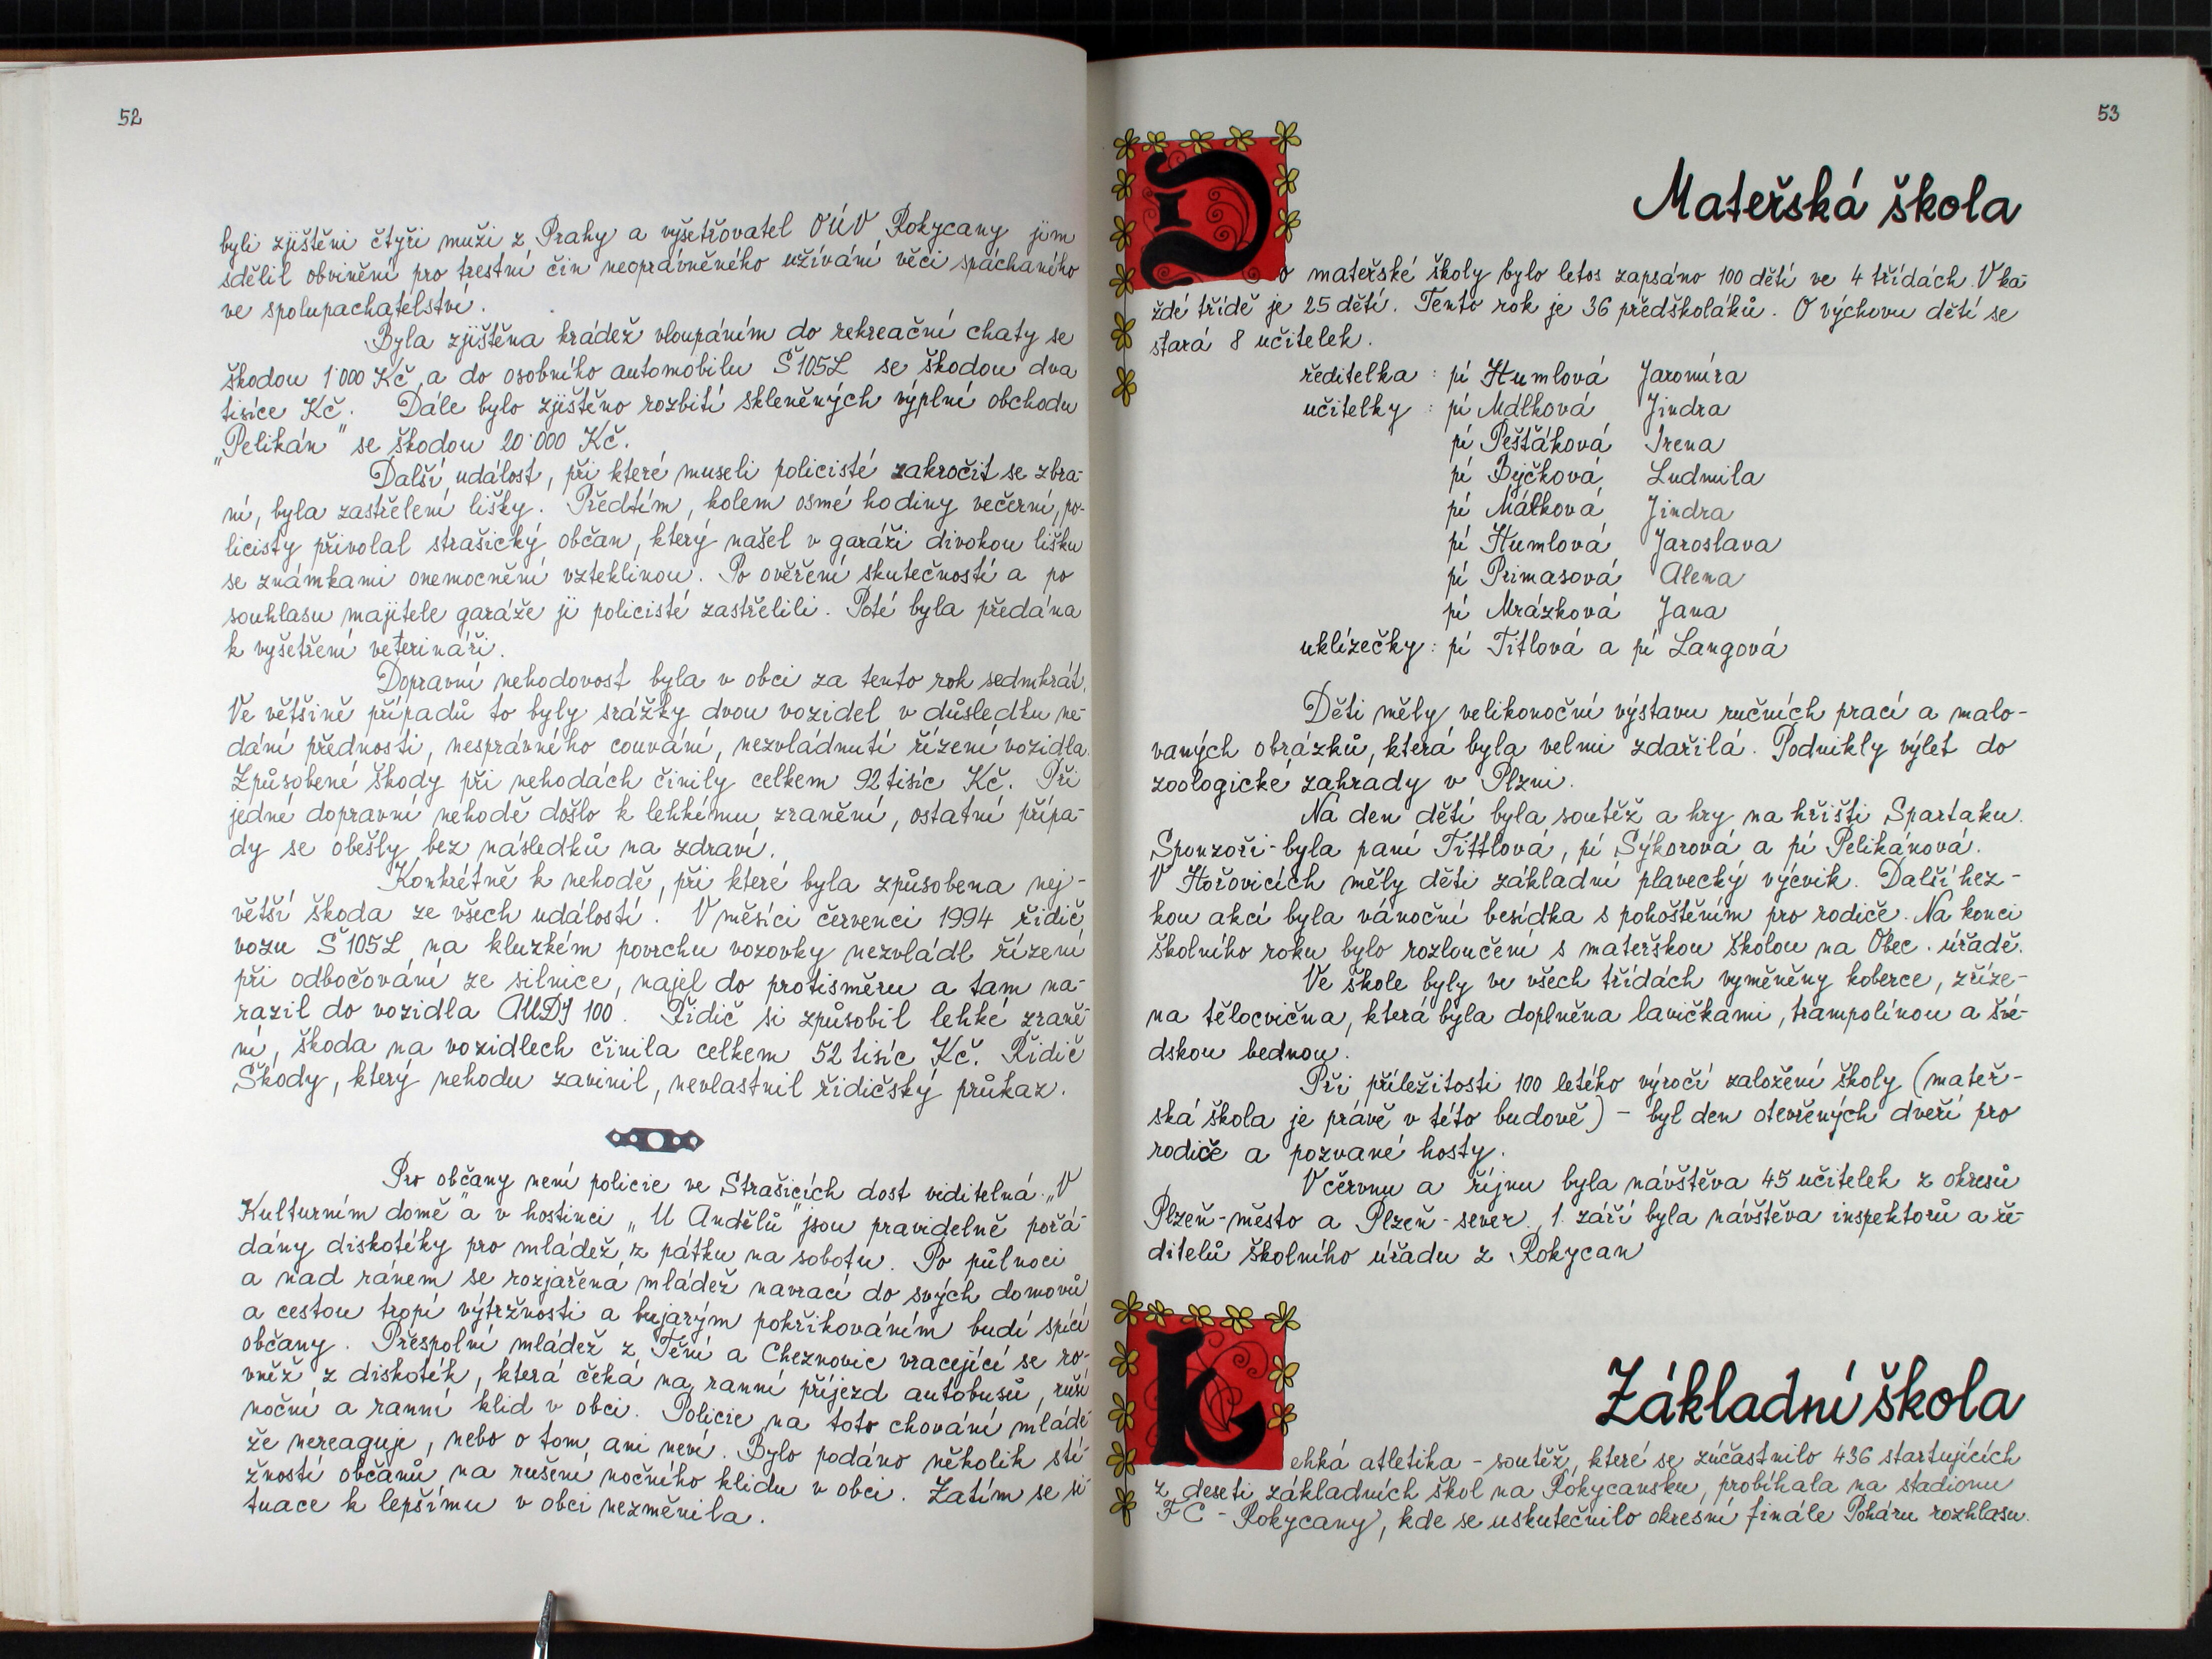 52
byli zjištěni čtyři muži z Prahy a vyšetřovatel OÚV Rokycany jim
sdělil obvinění pro trestní čin neoprávněného užívání věci spáchaného
ve spolupachatelství.
Byla zjištěna krádež vloupáním do rekreační chaty se
škodou 1'000 Kč a do osobního automobilu Š 105L se škodou dva
tisíce Kč. Dále bylo zjištěno rozbití skleněných výplní obchodu
„Pelikán" se škodou 20'000 Kč.
Další událost, při které museli policisté zakročit se zbra-
ní, byla zastřelení lišky. Předtím, kolem osmé hodiny večerní, po-
licisty přivolal strašický občan, který našel v garáži divokou lišku
se známkami onemocnění vzteklinou. Po ověření skutečností a po
souhlasu majitele garáže ji policisté zastřelili. Poté byla předána
k vyšetření veterináři.
Dopravní nehodovost byla v obci za tento rok sedmkrát.
Ve většině případů to byly srážky dvou vozidel v důsledku ne-
dání přednosti, nesprávného couvání, nezvládnutí řízení vozidla.
Způsobené škody při nehodách činily celkem 92 tisíc Kč. Při
jedné dopravní nehodě došlo k lehkému zranění, ostatní přípa-
dy se obešly bez následků na zdraví.
Konkrétně k nehodě, při které byla způsobena nej-
větší škoda ze všech událostí. V měsíci červenci 1994 řidič
vozu Š 105L na kluzkém povrchu vozovky nezvládl řízení
při odbočování ze silnice, najel do protisměru a tam na-
razil do vozidla AUDI 100. Řidič si způsobil lehké zraně-
ní, škoda na vozidlech činila celkem 52 tisíc Kč. Řidič
Škody, který nehodu zavinil, nevlastnil řidičský průkaz.
Pro občany není policie ve Strašicích dost viditelná. „V
Kulturním domě" a v hostinci „U Andělů" jsou pravidelně pořá-
dány diskotéky pro mládež z pátku na sobotu. Po půlnoci
a nad ránem se rozjařená mládež navrací do svých domovů
a cestou tropí výtržnosti a bujarým pokřikováním budí spící
občany. Přespolní mládež z Tění a Cheznovic vracející se ro-
vněž z diskoték, která čeká na ranní příjezd autobusů, ruší
noční a ranní klid v obci. Policie na toto chování mláde-
že nereaguje, nebo o tom ani neví. Bylo podáno několik stí-
žností občanů na rušení nočního klidu v obci. Zatím se si-
tuace k lepšímu v obci nezměnila.
53
Mateřská škola
Do mateřské školy bylo letos zapsáno 100 dětí ve 4 třídách. V ka-
ždé třídě je 25 dětí. Tento rok je 36 předškoláků. O výchovu dětí se
stará 8 učitelek.
ředitelka : pí Humlová Jaromíra
učitelky : pí Málková Jindra
pí Pešťáková Irena
pí Býčková Ludmila
pí Málková Jindra
pí Humlová Jaroslava
pí Primasová Alena
pí Mrázková Jana
uklízečky : pí Titlová a pí Langová
Děti měly velikonoční výstavu ručních prací a malo-
vaných obrázků, která byla velmi zdařilá. Podnikly výlet do
zoologické zahrady v Plzni.
Na den dětí byla soutěž a hry na hřišti Spartaku.
Sponzoři - byla paní Tittlová, pí Sýkorová a pí Pelikánová.
V Hořovicích měly děti základní plavecký výcvik. Další hez-
kou akcí byla vánoční besídka s pohoštěním pro rodiče. Na konci
školního roku bylo rozloučení s mateřskou školou na Obec. úřadě.
Ve škole byly ve všech třídách vyměněny koberce, zříze-
na tělocvična, která byla doplněna lavičkami, trampolínou a švé-
dskou bednou.
Při příležitosti 100 letého výročí založení školy (mateř-
ská škola je právě v této budově) - byl den otevřených dveří pro
rodiče a pozvané hosty.
V červnu a říjnu byla návštěva 45 učitelek z okresů
Plzeň-město a Plzeň-sever. 1. září byla návštěva inspektorů a ře-
ditelů školního úřadu z Rokycan
Základní škola
Lehká atletika - soutěž, které se zúčastnilo 436 startujících
z deseti základních škol na Rokycansku, probíhala na stadionu
FC - Rokycany, kde se uskutečnilo okresní finále Poháru rozhlasu.